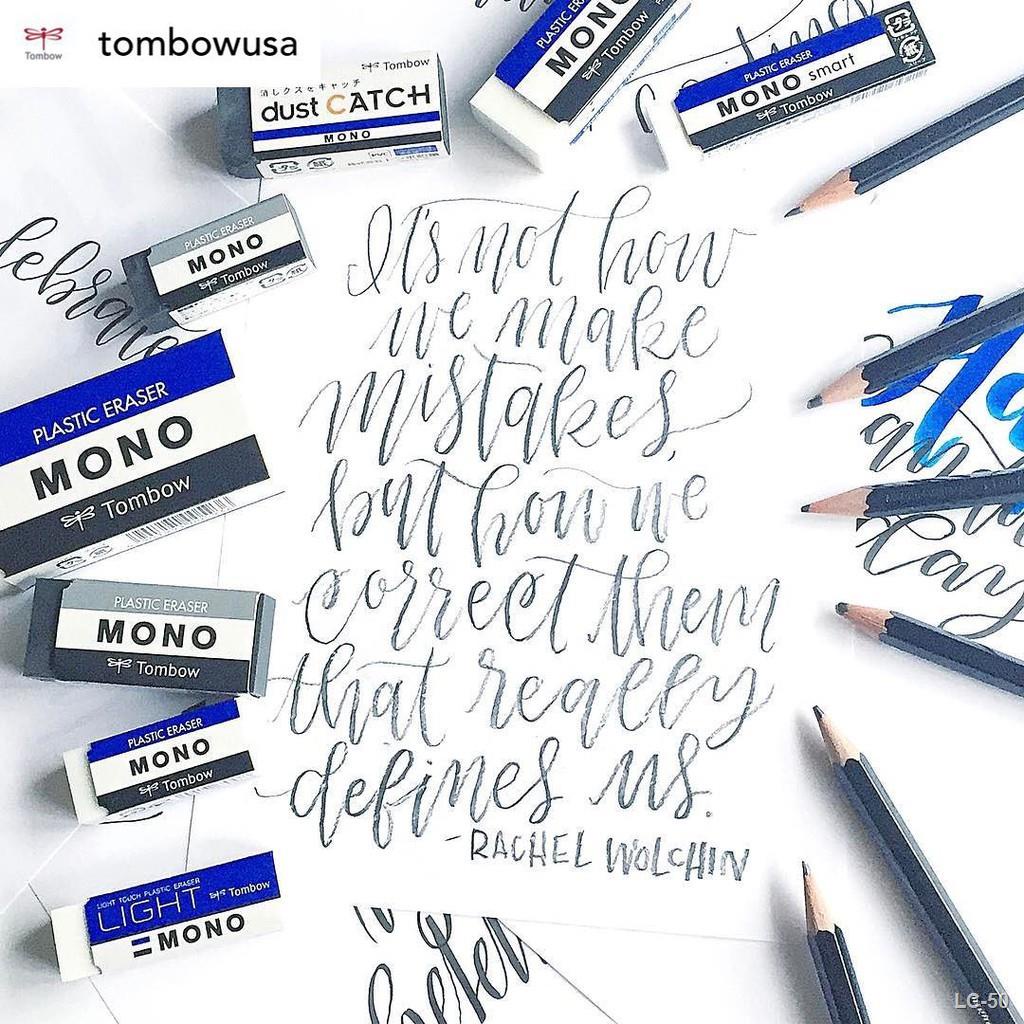 tombowusa
Tombow
Tombow
消しクズをキャッチ
dust CATCH
MONO
PLASTIC ERASER
MONO
Tombow
PLASTIC ERASER
MONO smart
Tombow
PLASTIC ERASER
MONO
Tombow
PLASTIC ERASER
MONO
Tombow
PLASTIC ERASER
MONO
Tombow
PLASTIC ERASER
MONO
Tombow
LIGHT TOUCH PLASTIC ERASER
LIGHT Tombow
MONO
It's not how
we make
mistakes,
but how we
correct them
that really
defines us.
-RACHEL WOLCHIN
LC-50